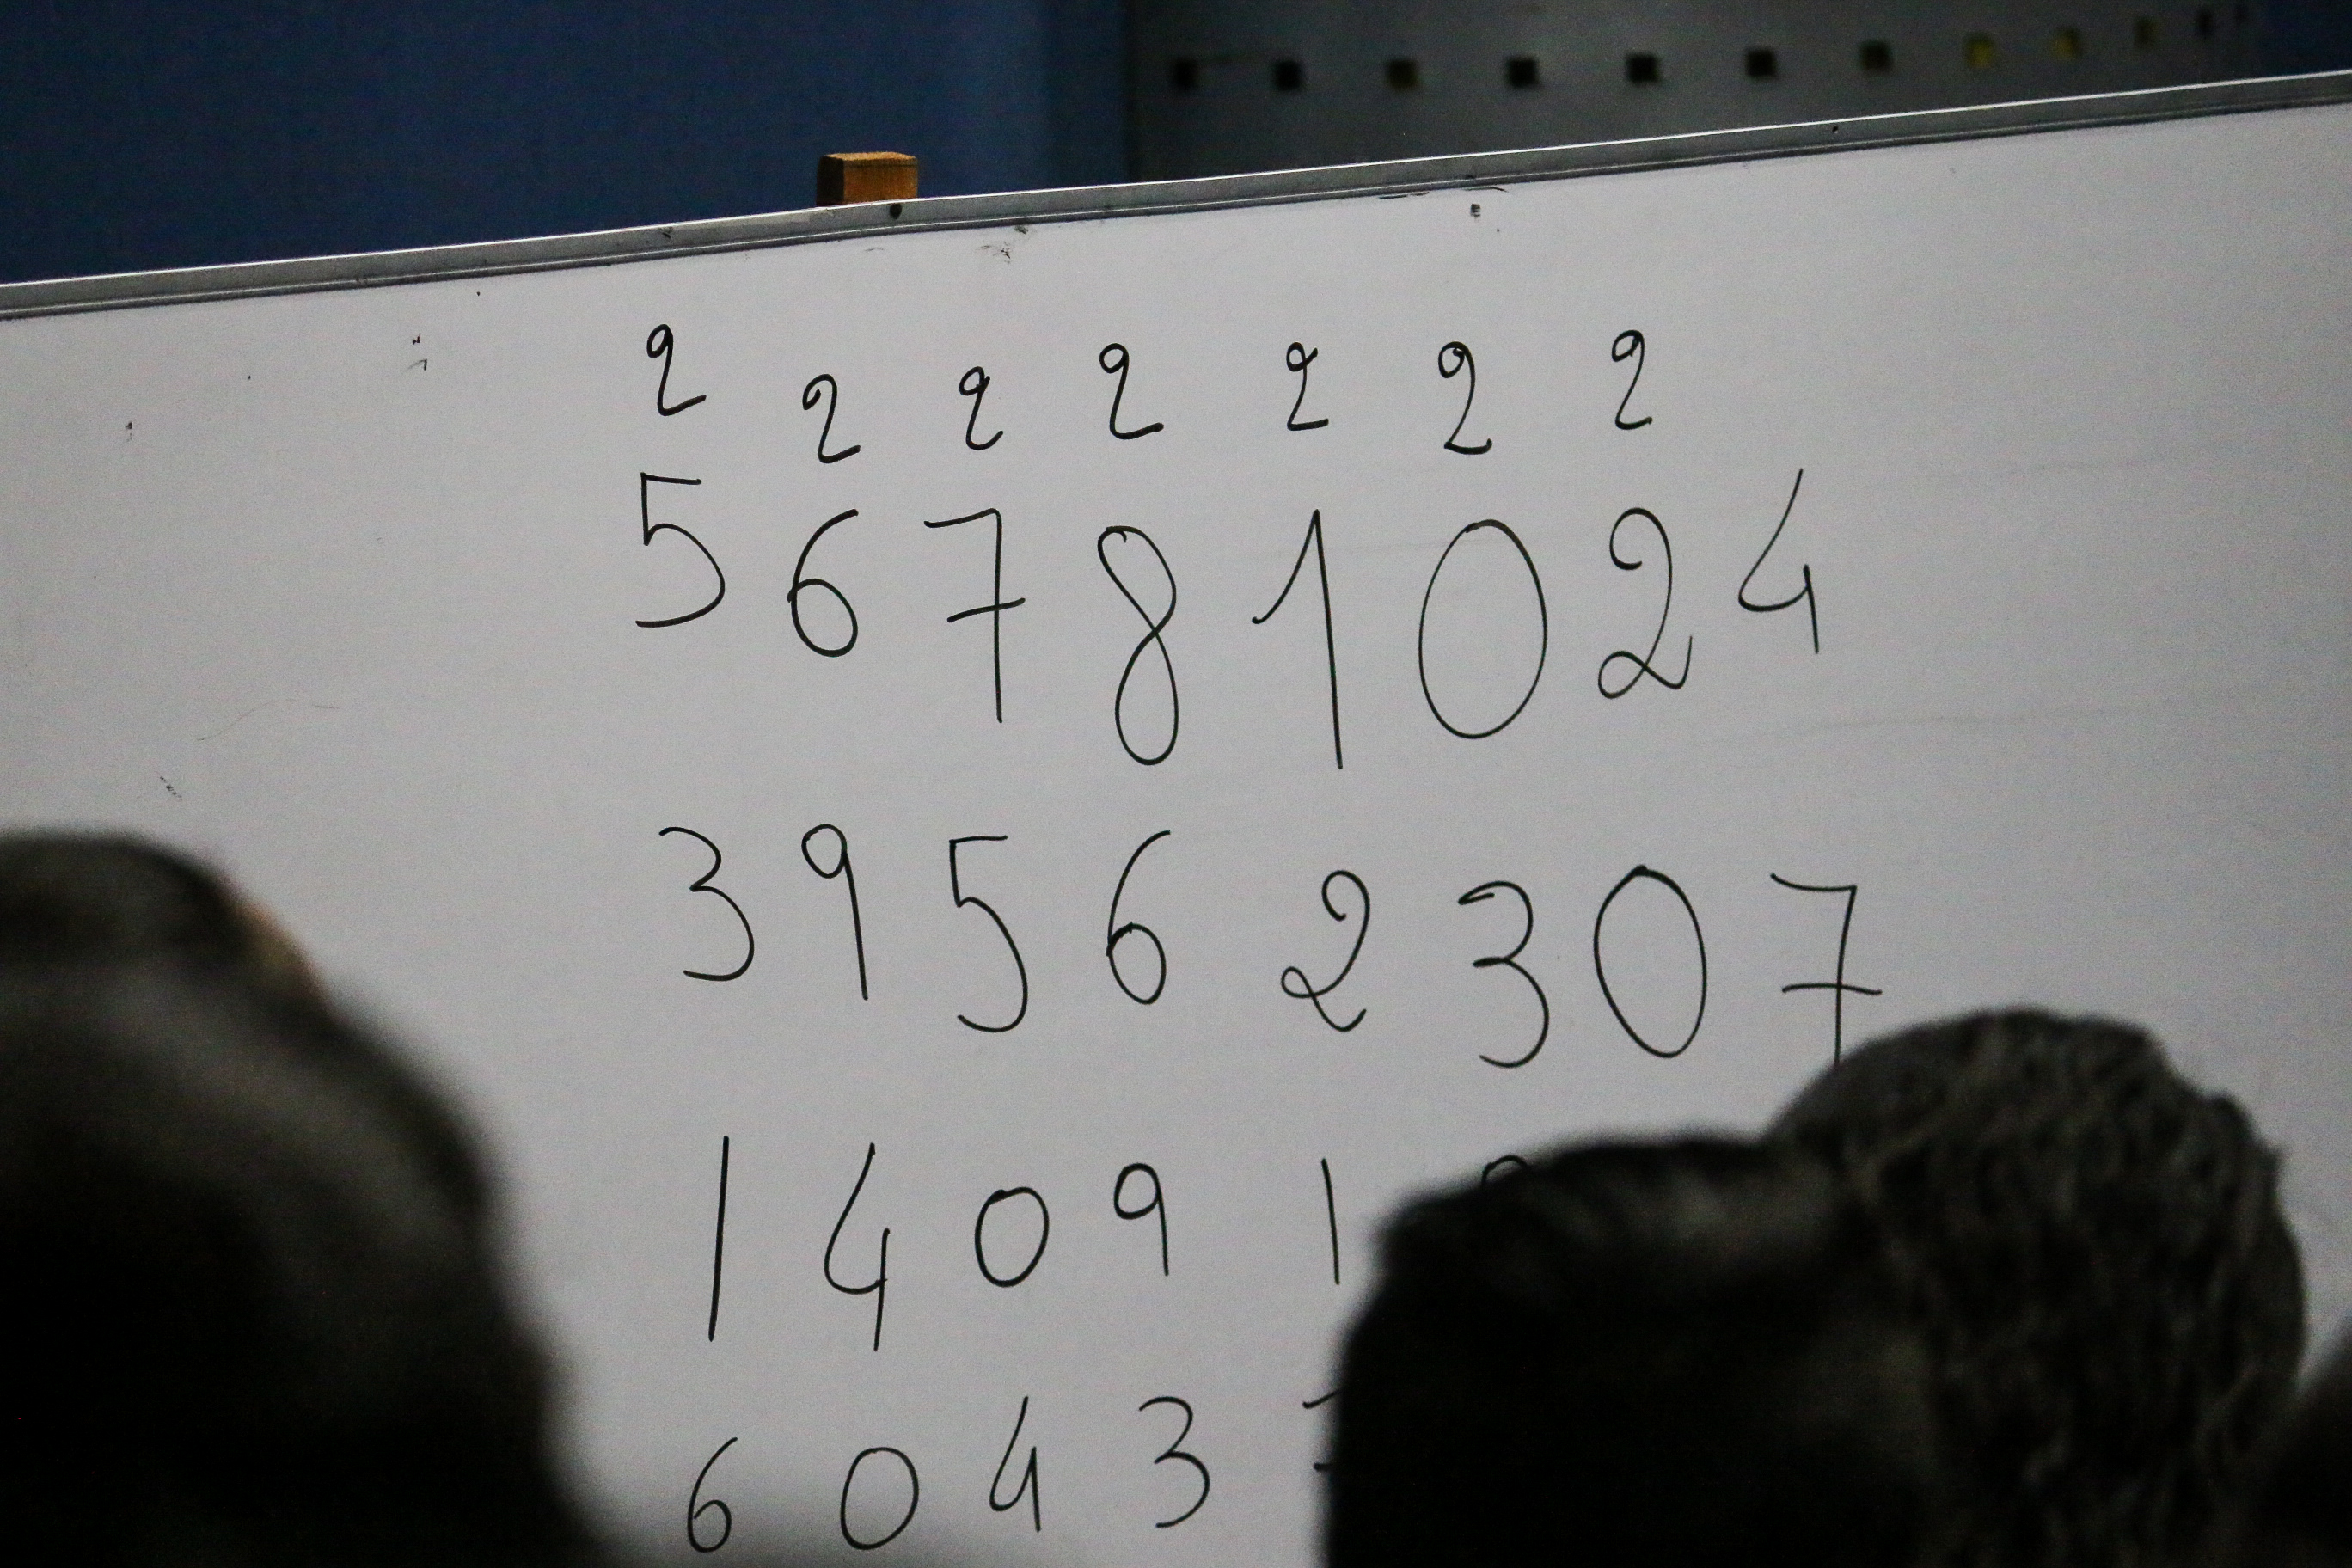 2 2 2 2 2 2 2
5 6 7 8 1 0 2 4
3 9 5 6 2 3 0 7
1 4 0 9 1
6 0 4 3